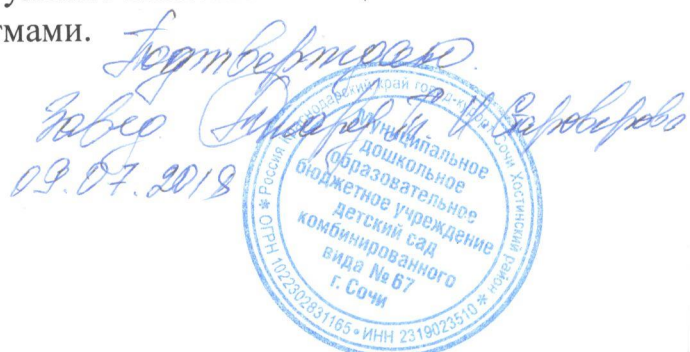 тмами.
Подтверждаю.
Завед. Н. И. Староверова
09.07.2018
Россия Краснодарский край город-курорт Сочи Хостинский район * ИНН 2319023510 * ОГРН 1022302831165
Муниципальное
дошкольное
образовательное
бюджетное учреждение
детский сад
комбинированного
вида № 67
г. Сочи